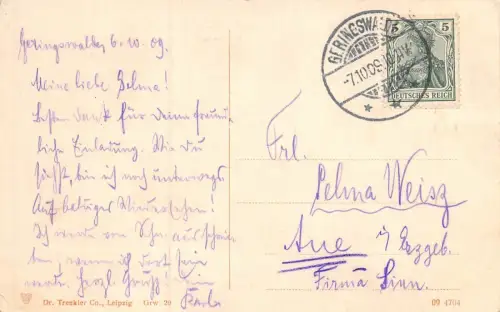 Geringswalde, 6.10.09.
Meine liebe Selma!
Besten Dank für Deine freund-
liche Einladung. Wie Du
siehst, bin ich noch unterwegs
Auf baldiges Wiedersehen!
Ich werde von
wenn ich dort sein
werde. Herzl. Gruß! Dein
GERINGSWALDE
-7.10.09
5 5
DEUTSCHES REICH
Frl.
Selma Weisz
Aue i/Erzgeb.
Firma
Dr. Trenkler Co., Leipzig Grw. 20
09 4704